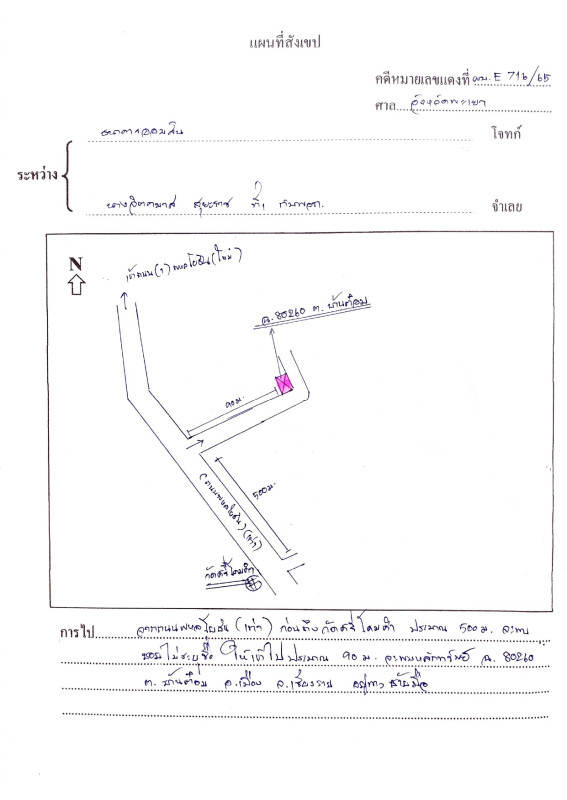 แผนที่สังเขป
คดีหมายเลขแดงที่ ผบ.E 716/65
ศาล จังหวัดพะเยา
ธนาคารออมสิน โจทก์
ระหว่าง
ที่ 1 กับพวก จำเลย
N
เข้าถนน(1)พหลโยธิน(ใหม่)
ฉ.80260 ต.บ้านต๋อม
90ม.
500ม.
(ถนนพหลโยธิน)(เก่า)
วัดศรีโคมคำ
การไป จากถนนพหลโยธิน(เก่า) ก่อนถึงวัดศรีโคมคำ ประมาณ 500 ม. จะพบ
ซอยไม่ระบุชื่อ ให้เข้าไปประมาณ 90 ม. จะพบหลักทรัพย์ ฉ. 80260
ต.บ้านต๋อม อ.เมือง จ.เชียงราย อยู่ทางซ้ายมือ